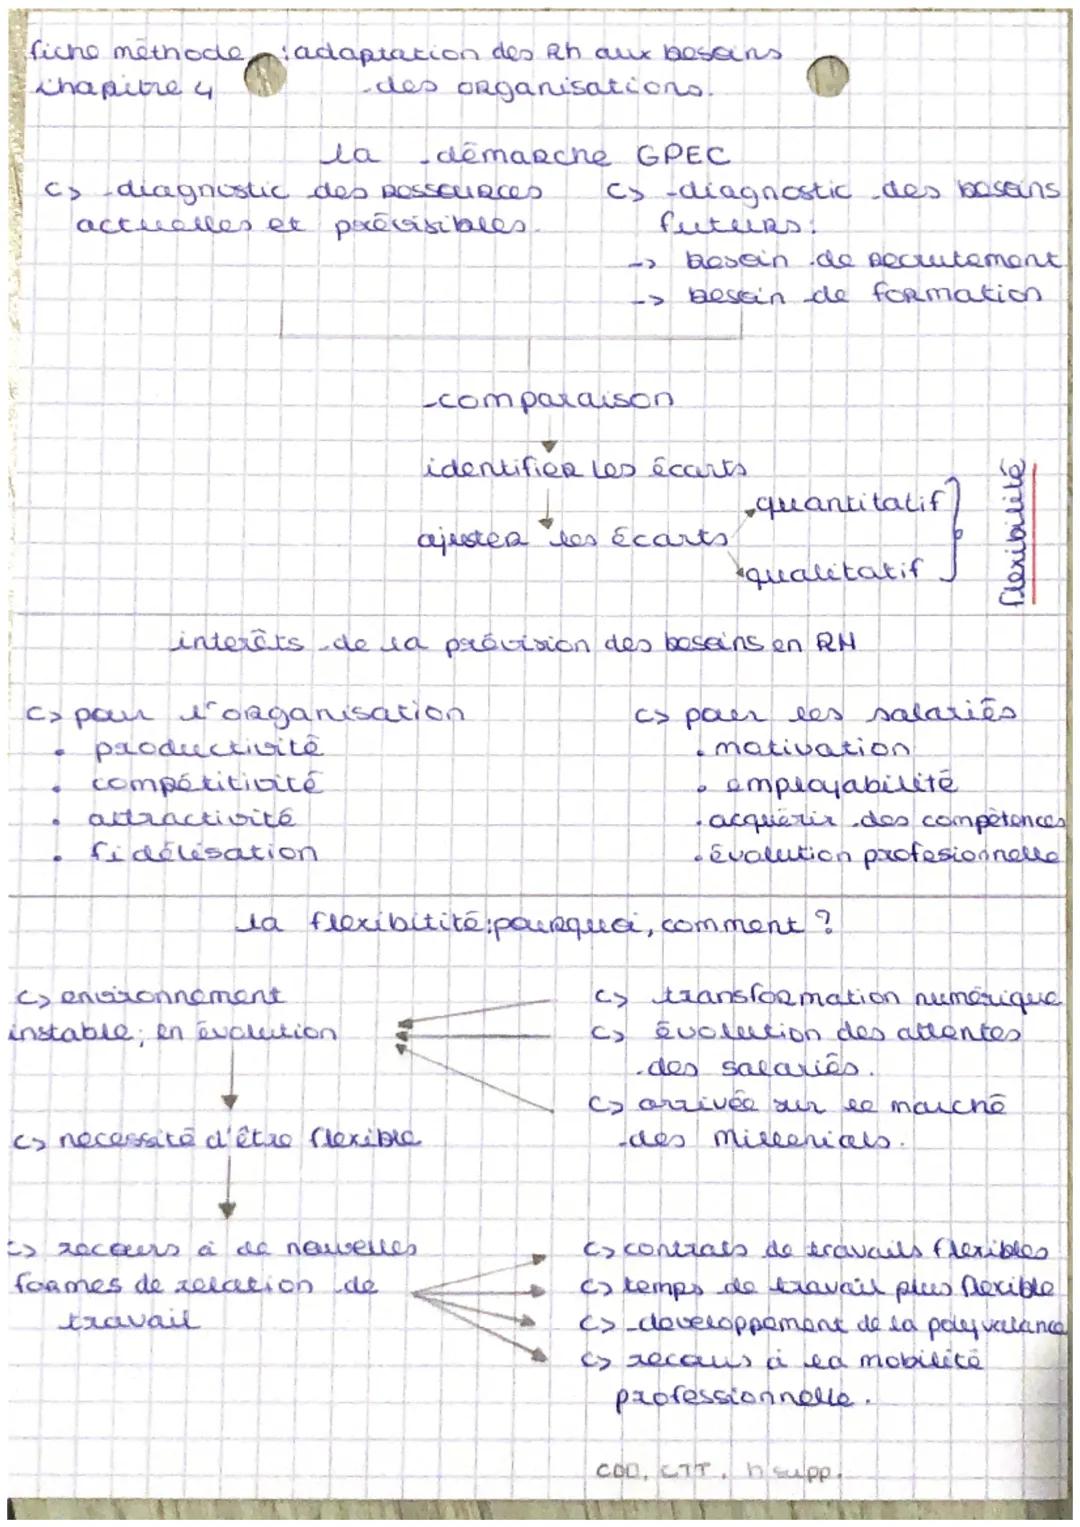 fiche méthode : adaptation des Rh aux besoins
chapitre 4 des organisations.
la démarche GPEC
↪ diagnostic des ressources
actuelles et prévisibles.
↪ diagnostic des besoins
futurs:
-> besoin de recrutement
-> besoin de formation
comparaison
identifier les écarts
ajuster les écarts
quantitatif
qualitatif
flexibilité
interêts de la prévision des besoins en RH
↪ pour l'organisation
• productivité
• compétitivité
• attractivité
• fidélisation
↪ pour les salariés
• motivation
• employabilité
• acquérir des compétences
• évolution profesionnelle
la flexibitité: pourquoi, comment ?
↪ environnement
instable; en évolution
↪ necessité d'être flexible
↪ recours à de nouvelles
formes de relation de
travail
↪ transformation numérique
↪ évolution des attentes
des salariés.
↪ arrivée sur le marché
des millenials.
↪ contrats de travails flexibles
↪ temps de travail plus flexible
↪ developpement de la polyvalance
↪ recours à la mobilité
professionnelle.
CDD, CTT, h supp.